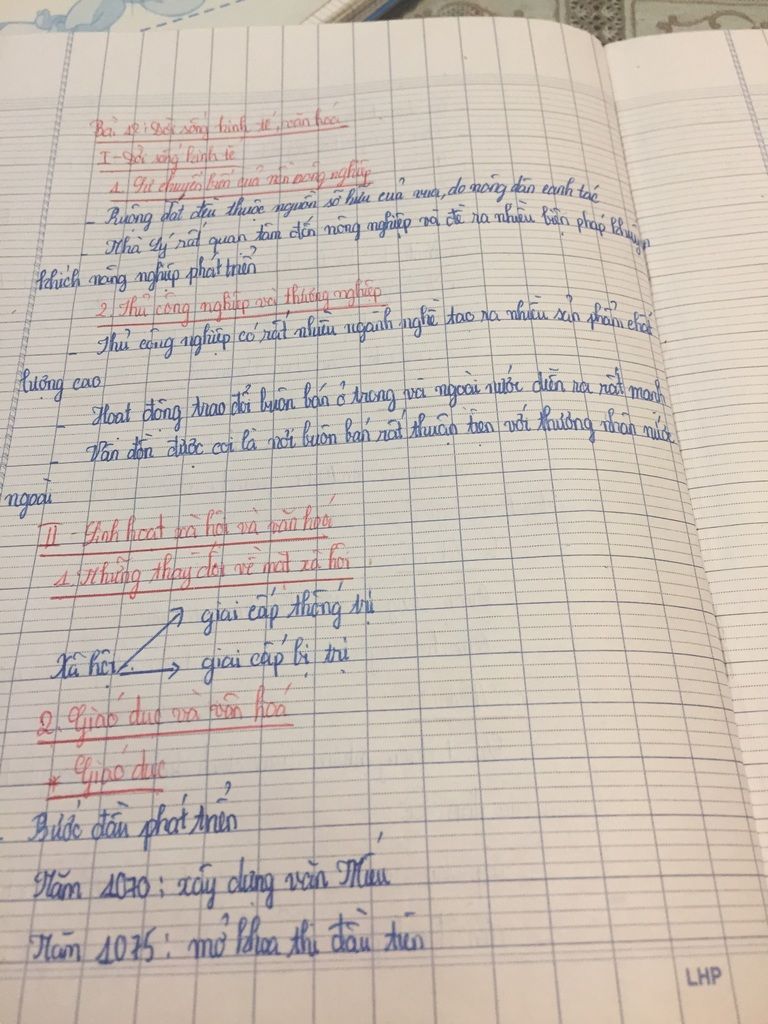 Bài 12: Đời sống kinh tế, văn hoá
I - Đời sống kinh tế
1. Sự chuyển biến của nền nông nghiệp
- Ruộng đất đều thuộc nguồn sở hữu của vua, do nông dân canh tác
- Nhà Lý rất quan tâm đến nông nghiệp và đề ra nhiều biện pháp khuyến
khích nông nghiệp phát triển
2. Thủ công nghiệp và thương nghiệp
- Thủ công nghiệp có rất nhiều ngành nghề tạo ra nhiều sản phẩm chất
lượng cao
- Hoạt động trao đổi buôn bán ở trong và ngoài nước diễn ra rất mạnh
- Vân đồn được coi là nơi buôn bán rất thuận tiện với thương nhân nước
ngoài
II - Sinh hoạt xã hội và văn hoá
1. Những thay đổi về mặt xã hội
giai cấp thống trị
Xã hội
giai cấp bị trị
2. Giáo dục và văn hoá
* Giáo dục
Bước đầu phát triển
Năm 1070: xây dựng văn Miếu
Năm 1075: mở khoa thi đầu tiên
LHP